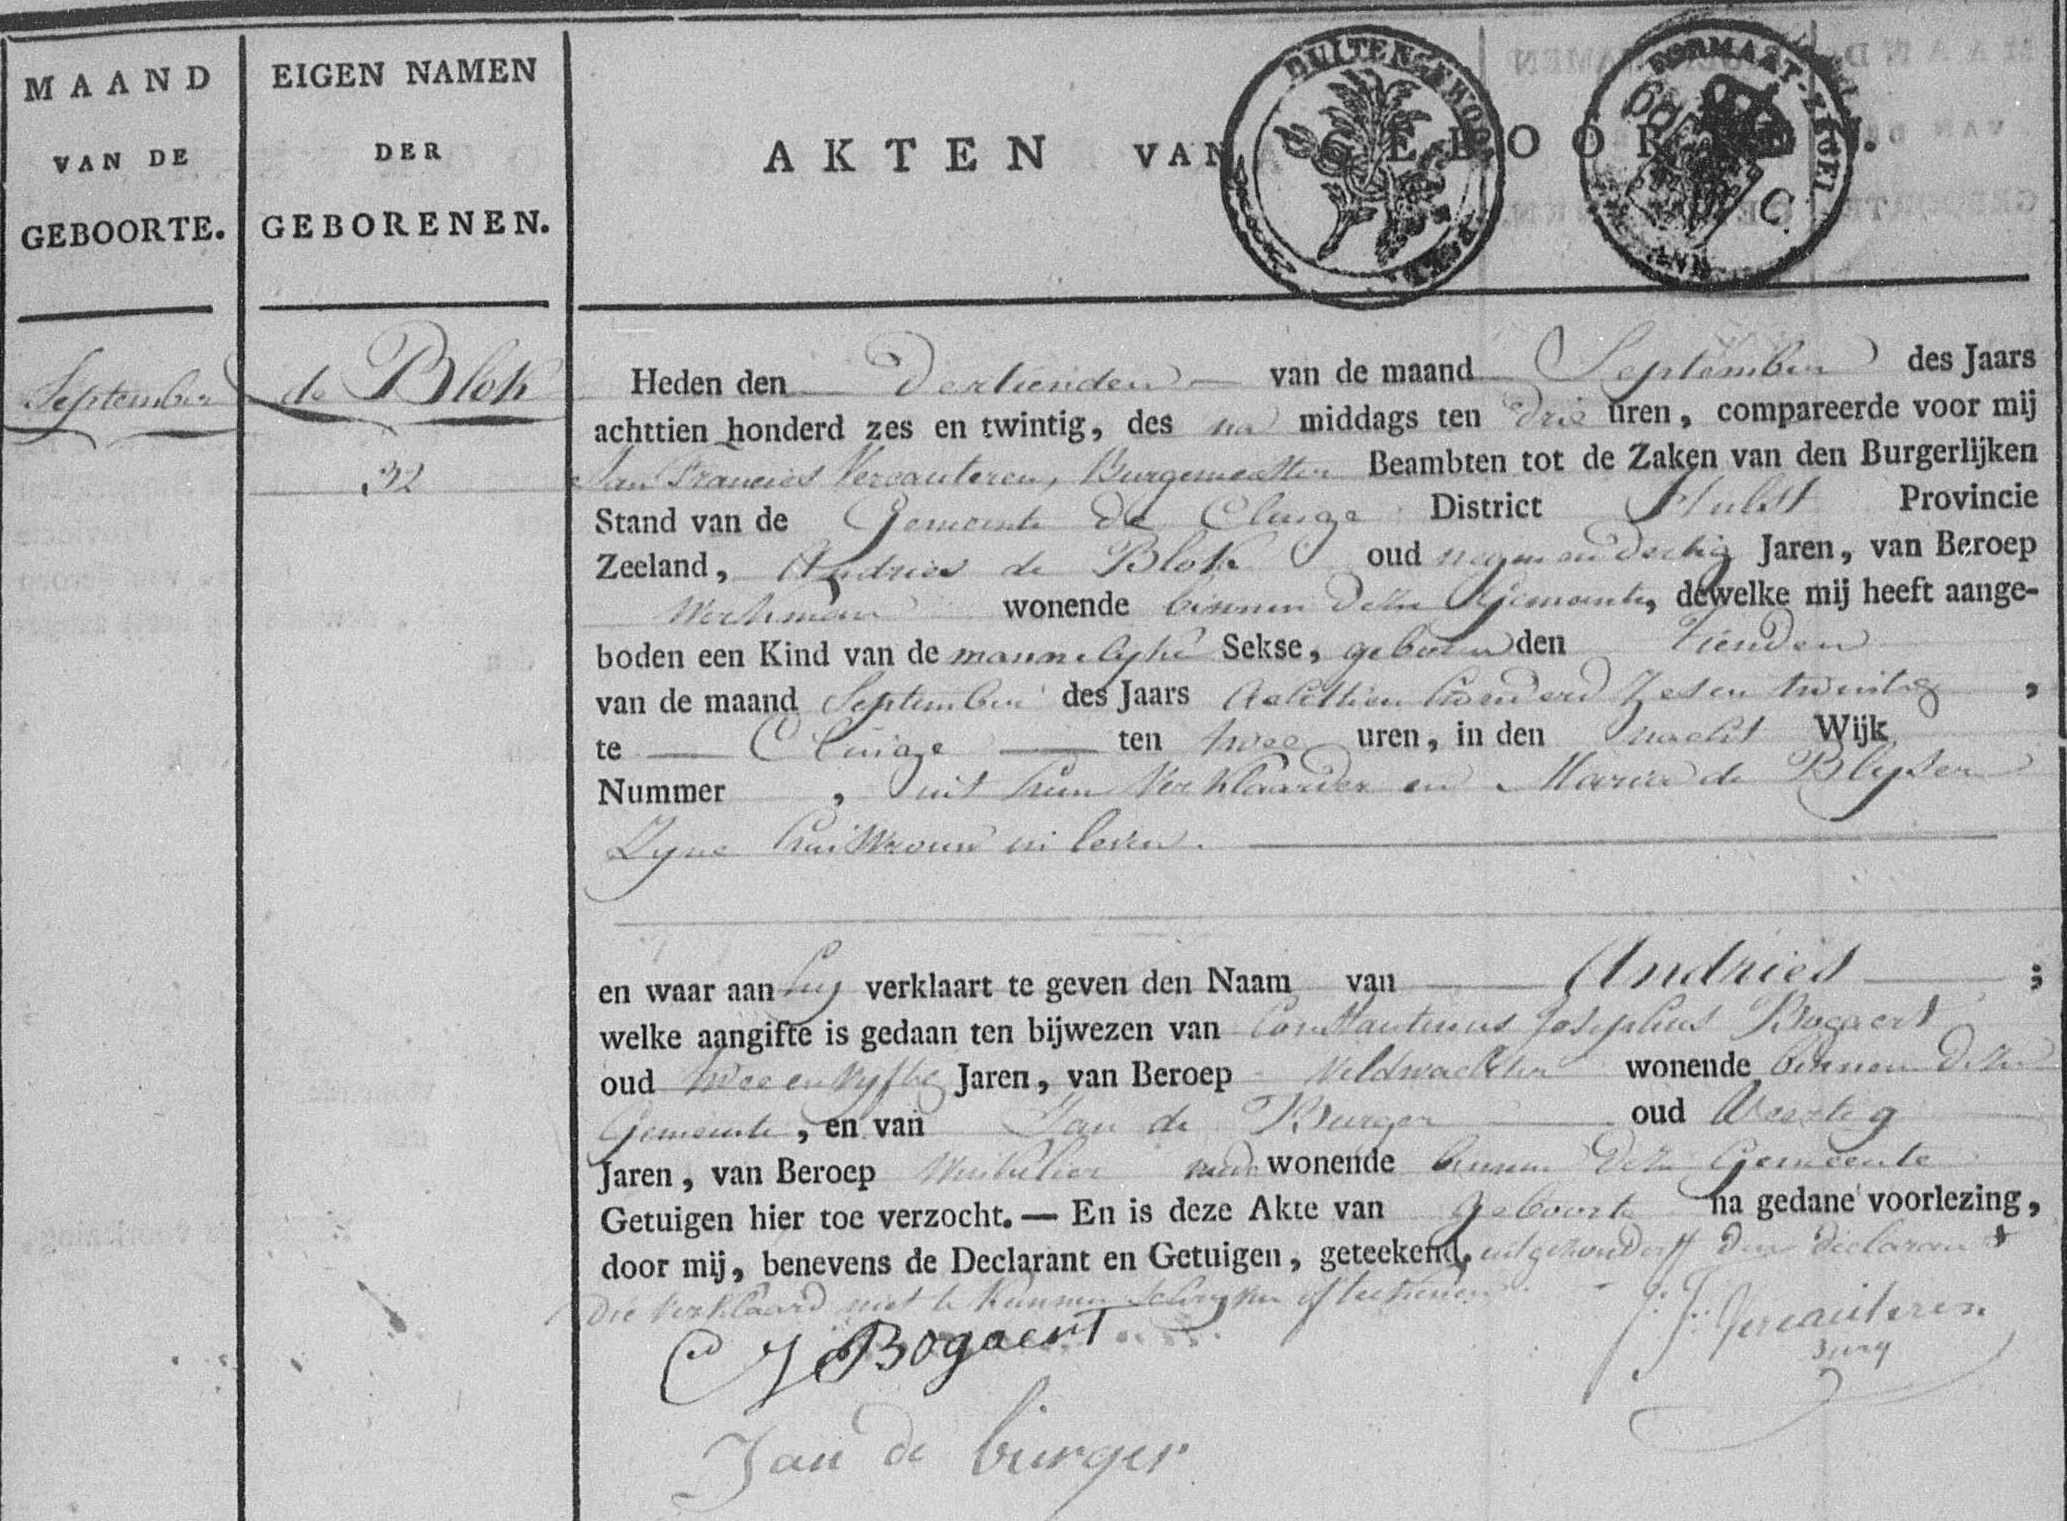 MAAND
VAN DE
GEBOORTE.
EIGEN NAMEN
DER
GEBORENEN.
AKTEN VAN GEBOORTEN.
BUITENGEWOON
FORMAAT-ZEGEL
September
de Blok
32
Heden den Dertienden van de maand September des Jaars
achttien honderd zes en twintig, des na middags ten drie uren, compareerde voor mij
Jan Francies Vercauteren, Burgemeester Beambten tot de Zaken van den Burgerlijken
Stand van de Gemeente de Clinge District Hulst Provincie
Zeeland, Andries de Blok oud negenendertig Jaren, van Beroep
Werkman wonende binnen deze Gemeente, dewelke mij heeft aange-
boden een Kind van de mannelyke Sekse, geboren den Tienden
van de maand September des Jaars Achttien honderd Zes en twintig,
te Clinge ten twee uren, in den nacht Wijk
Nummer , uit hem Verklaarder en Maria de Blyser
Zyne huisvrouw in leven.
en waar aan hy verklaart te geven den Naam van Andries;
welke aangifte is gedaan ten bijwezen van Constantinus Josephus Bogaert
oud twee en vyftig Jaren, van Beroep Veldwachter wonende binnen deze
Gemeente, en van Jan de Burger oud Veertig
Jaren, van Beroep Winkelier mede wonende binnen deze Gemeente
Getuigen hier toe verzocht. — En is deze Akte van geboorte na gedane voorlezing,
door mij, benevens de Declarant en Getuigen, geteekend, uitgezonderd den declarant
die verklaard niet te kunnen schryven of teekenen.
C J Bogaert
J. F. Vercauteren
burg
Jan de burger